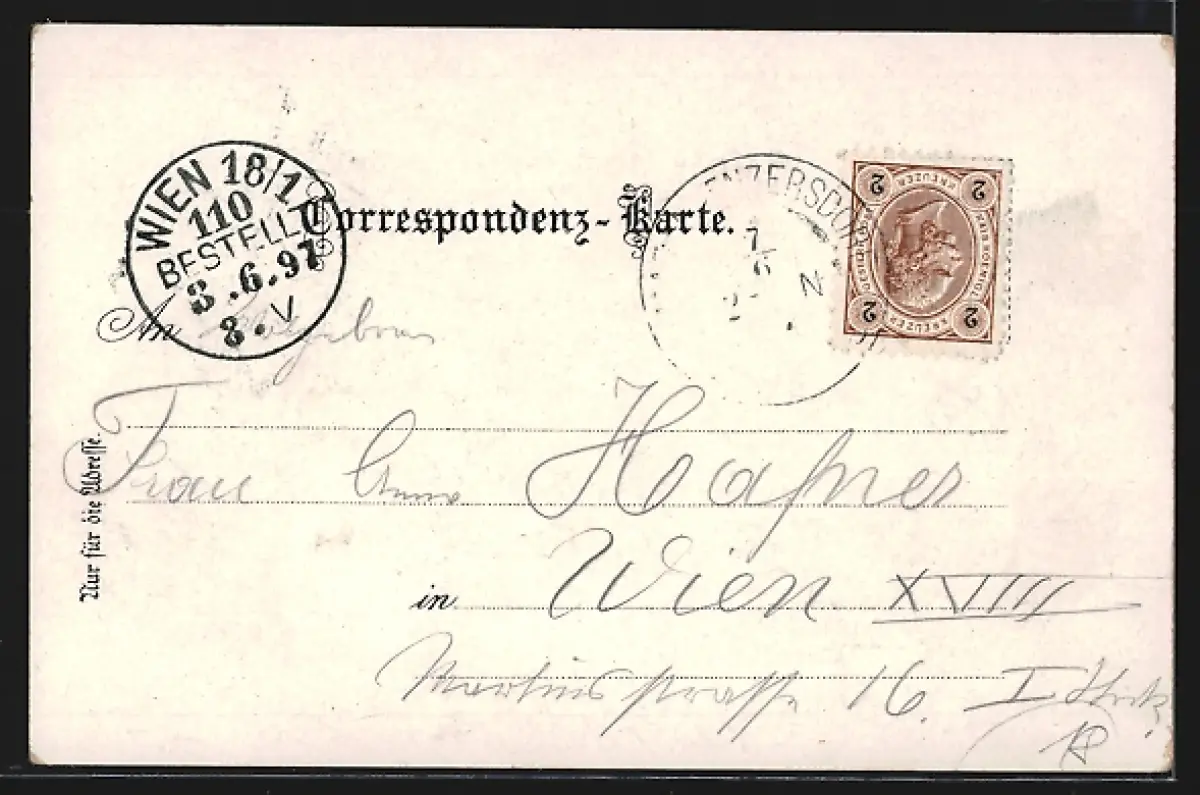 WIEN 18/1
110
BESTELLT
3.6.97
8.V
Correspondenz-Karte.
ENZERSDO
7
6
N
2 KREUZER 2
2 KREUZER 2
An
Nur für die Adresse.
Frau Anna Hafner
in Wien XVIII
Martinsstrasse 16. I Stock
18